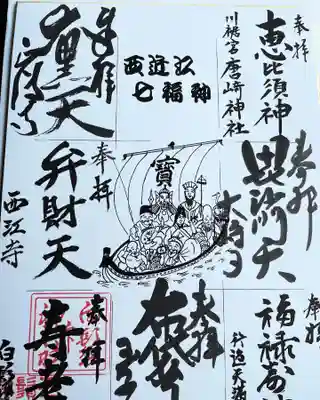 奉拝
恵比須神
川裾宮 唐崎神社
西近江
七福神
奉拝
大黒天
奉拝
毘沙門天
寳
奉拝
弁財天
西江寺
奉拝
福禄寿神
行過天満
奉拝
布袋
奉拝
寿老
白鬚